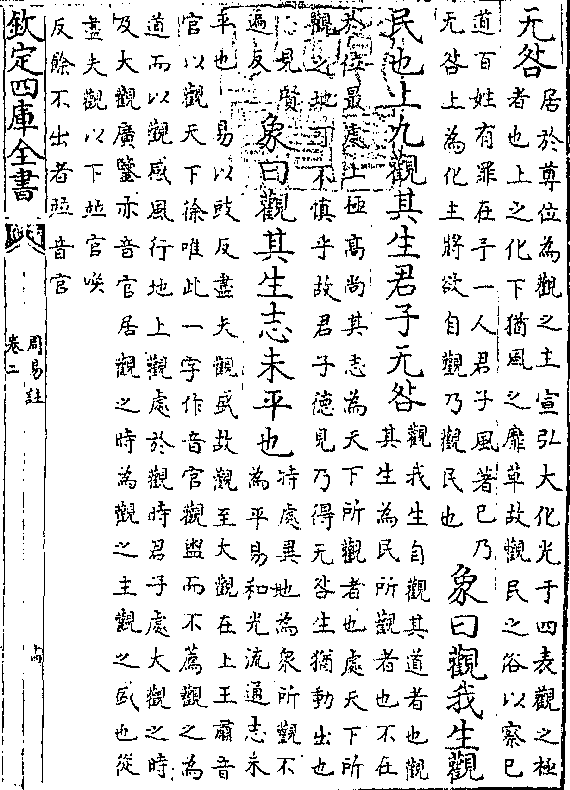 无咎
居於尊位為觀之主宣弘大化光于四表觀之極
者也上之化下猶風之靡草故觀民之俗以察已
道百姓有罪在予一人君子風著已乃
无咎上為化主將欲自觀乃觀民也
象曰觀我生觀
民也上九觀其生君子无咎
觀我生自觀其道者也觀
其生為民所觀者也不在
於位最處上極高尚其志為天下所觀者也處天下所
觀之地可不慎乎故君子德見乃得无咎生猶動出也
見賢
遍反
象曰觀其生志未平也
特處異地為衆所觀不
為平易和光流通志未
平也 易以豉反盡夫觀盛故觀至大觀在上王肅音
官以觀天下徐唯此一字作音官觀盥而不薦觀之為
道而以觀感風行地上觀處於觀時君子處大觀之時
及大觀廣鑒亦音官居觀之時為觀之主觀之盛也從
盡夫觀以下並官喚
反餘不出者並音官
欽定四庫全書
周易註
卷二